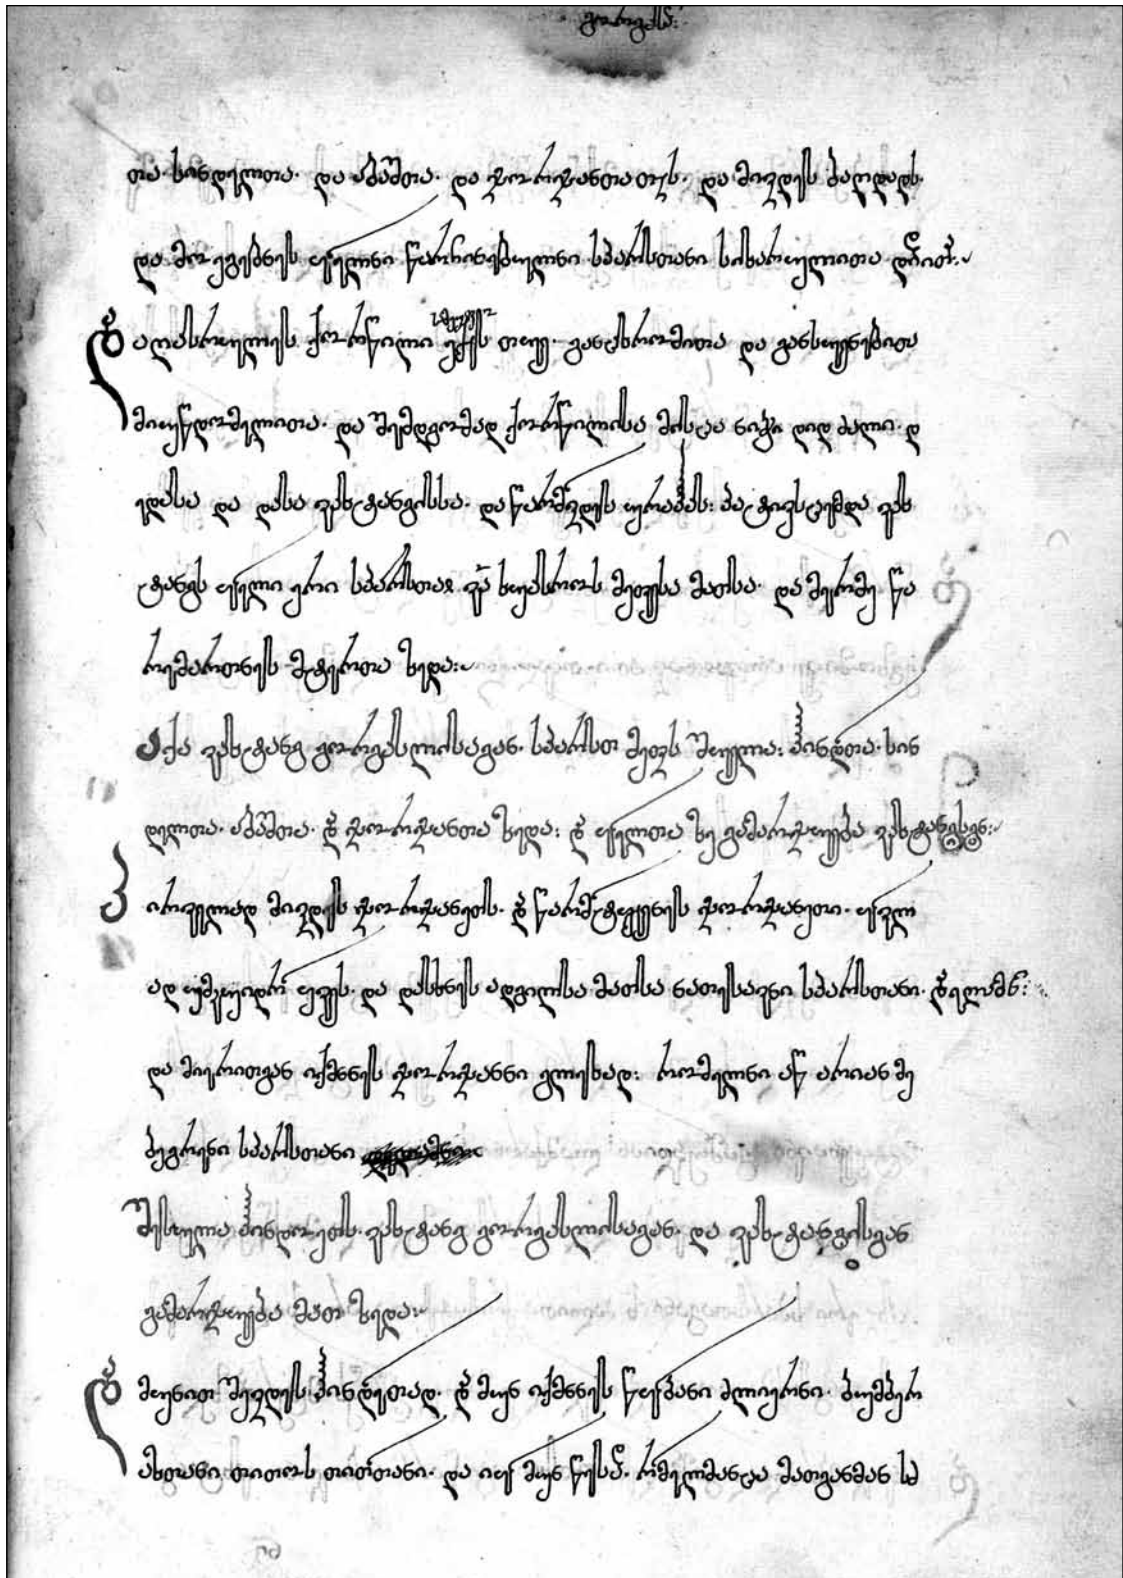 გორგასა:
თა. სინდელთა. და აბაშთა. და ჯორჯანთა თჳს. და მივიდეს ბაღდადს.
და მოეგებნეს ყოველნი წარჩინებულნი სპარსთანი სიხარულითა დიდითა:
აღასრულეს ქორწილი ექუს თთუე. განცხრომითა და განსუენებითა
მიუწდომელითა. და შემდგომად ქორწილისა მისცა ნიჭი დიდძალი. დ
ედასა და დასა ვახტანგისსა. და წარმოვიდეს ურაჰას: პატივსცემდა ვახ
ტანგს ყოველი ერი სპარსთა ვა ხუასროს მეფესა მათსა. და მერმე წა
რემართნეს მტერთა ზედა:
აქა ვახტანგ გორგასლისაგან. სპარსთ მეფის შოელა: ჰინდთა. სინ
დელთა. აბაშთა. და ჯორჯანთა ზედა: და ყოველთა ზე გამარჯუება ვახტანგისგნ:
პირველად მივიდეს ჯორჯანეთს. და წარმოტყუენეს ჯორჯანეთი. ყოვლ
ად უმკჳდრო ყვეს. და დასხნეს ადგილსა მათსა ნათესავნი სპარსთანი. დელამნ:
და მიერითგან იქმნნეს ჯორჯანნი გლეხად: რომელნი აწ არიან მე
ბეგრენი სპარსთანი
შესულა ჰინდოეთს. ვახტანგ გორგასლისაგან. და ვახტანგისგან
გამარჯუება მათ ზედა:
მუნით შევიდეს ჰინდოეთად. და მუნ იქმნნეს წყობანი ძლიერნი. ბუმბერ
აზთანი თითოს თითოთანი. და იყო მუნ წესად. რომელმანცა მათგანმან სძ